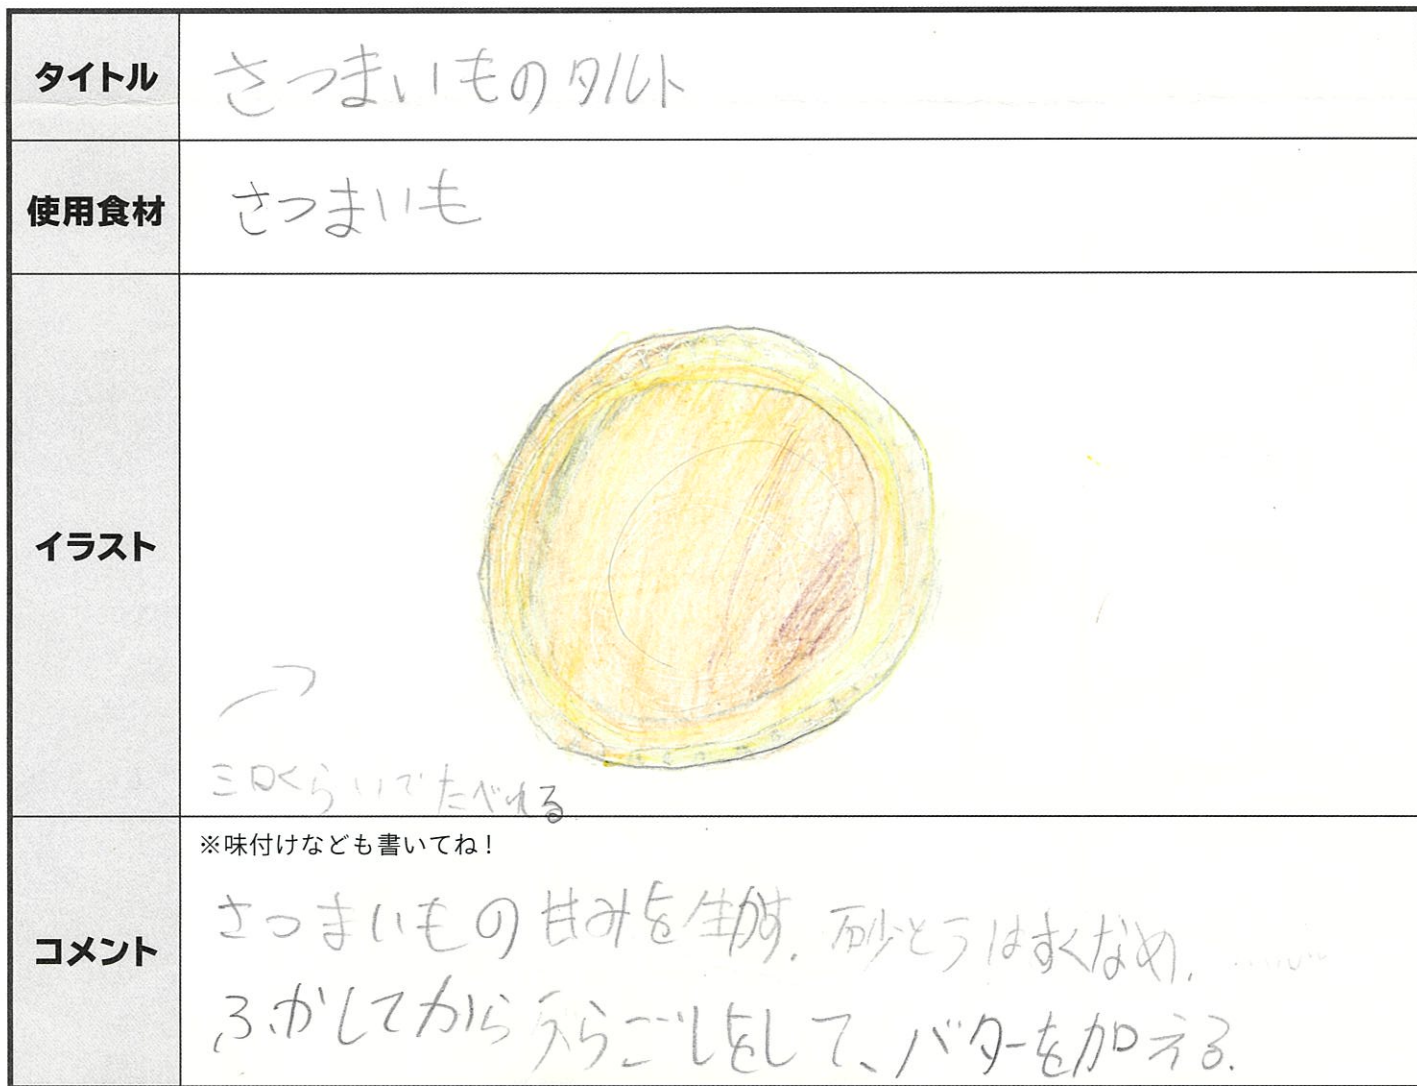 タイトル
さつまいものタルト
使用食材
さつまいも
イラスト
三口くらいでたべれる
コメント
※味付けなども書いてね！
さつまいもの甘みを生かす。砂とうはすくなめ。
ふかしてからうらごしをして、バターを加える。